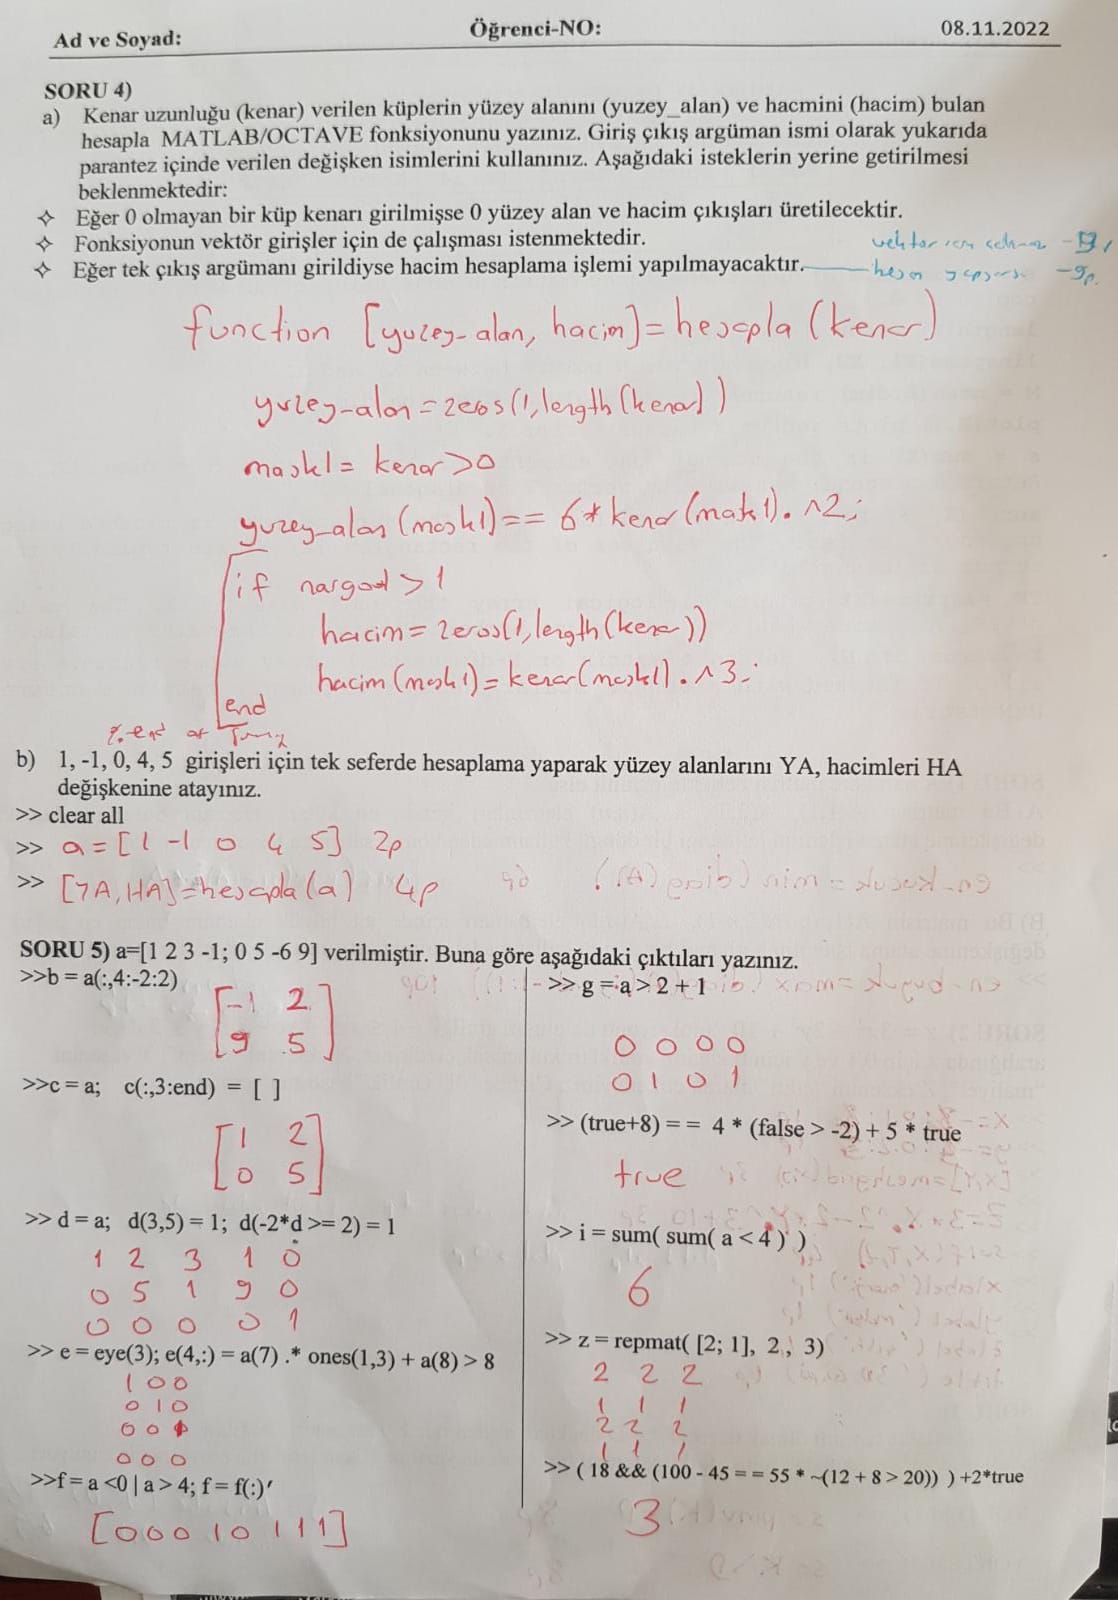 Ad ve Soyad:
Öğrenci-NO:
08.11.2022
SORU 4)
a) Kenar uzunluğu (kenar) verilen küplerin yüzey alanını (yuzey_alan) ve hacmini (hacim) bulan
hesapla MATLAB/OCTAVE fonksiyonunu yazınız. Giriş çıkış argüman ismi olarak yukarıda
parantez içinde verilen değişken isimlerini kullanınız. Aşağıdaki isteklerin yerine getirilmesi
beklenmektedir:
✧ Eğer 0 olmayan bir küp kenarı girilmişse 0 yüzey alan ve hacim çıkışları üretilecektir.
✧ Fonksiyonun vektör girişler için de çalışması istenmektedir.
✧ Eğer tek çıkış argümanı girildiyse hacim hesaplama işlemi yapılmayacaktır.
function [yuzey_alan, hacim]=hesapla(kenar)
yuzey_alan=zeros(1,length(kenar))
mask1= kenar>0
yuzey_alan(mask1)== 6*kenar(mask1).^2;
if nargout>1
hacim=zeros(1,length(kenar))
hacim(mask1)=kenar(mask1).^3;
end
%end of
b) 1, -1, 0, 4, 5 girişleri için tek seferde hesaplama yaparak yüzey alanlarını YA, hacimleri HA
değişkenine atayınız.
>> clear all
>> a=[1 -1 0 4 5] 2p
>> [YA,HA]=hesapla(a) 4p
SORU 5) a=[1 2 3 -1; 0 5 -6 9] verilmiştir. Buna göre aşağıdaki çıktıları yazınız.
>>b = a(:,4:-2:2)
[-1 2
9 5]
>>c = a; c(:,3:end) = [ ]
[1 2
0 5]
>> d = a; d(3,5) = 1; d(-2*d >= 2) = 1
1 2 3 1 0
0 5 1 9 0
0 0 0 0 1
>> e = eye(3); e(4,:) = a(7) .* ones(1,3) + a(8) > 8
1 0 0
0 1 0
0 0 1
0 0 0
>>f = a <0 | a > 4; f = f(:)'
[0 0 0 1 0 1 1 1]
>> g = a > 2 + 1
0 0 0 0
0 1 0 1
>> (true+8) = = 4 * (false > -2) + 5 * true
true
>> i = sum( sum( a < 4 ) )
6
>> z = repmat( [2; 1], 2 , 3)
2 2 2
1 1 1
2 2 2
1 1 1
>> ( 18 && (100 - 45 = = 55 * ~(12 + 8 > 20)) ) +2*true
3